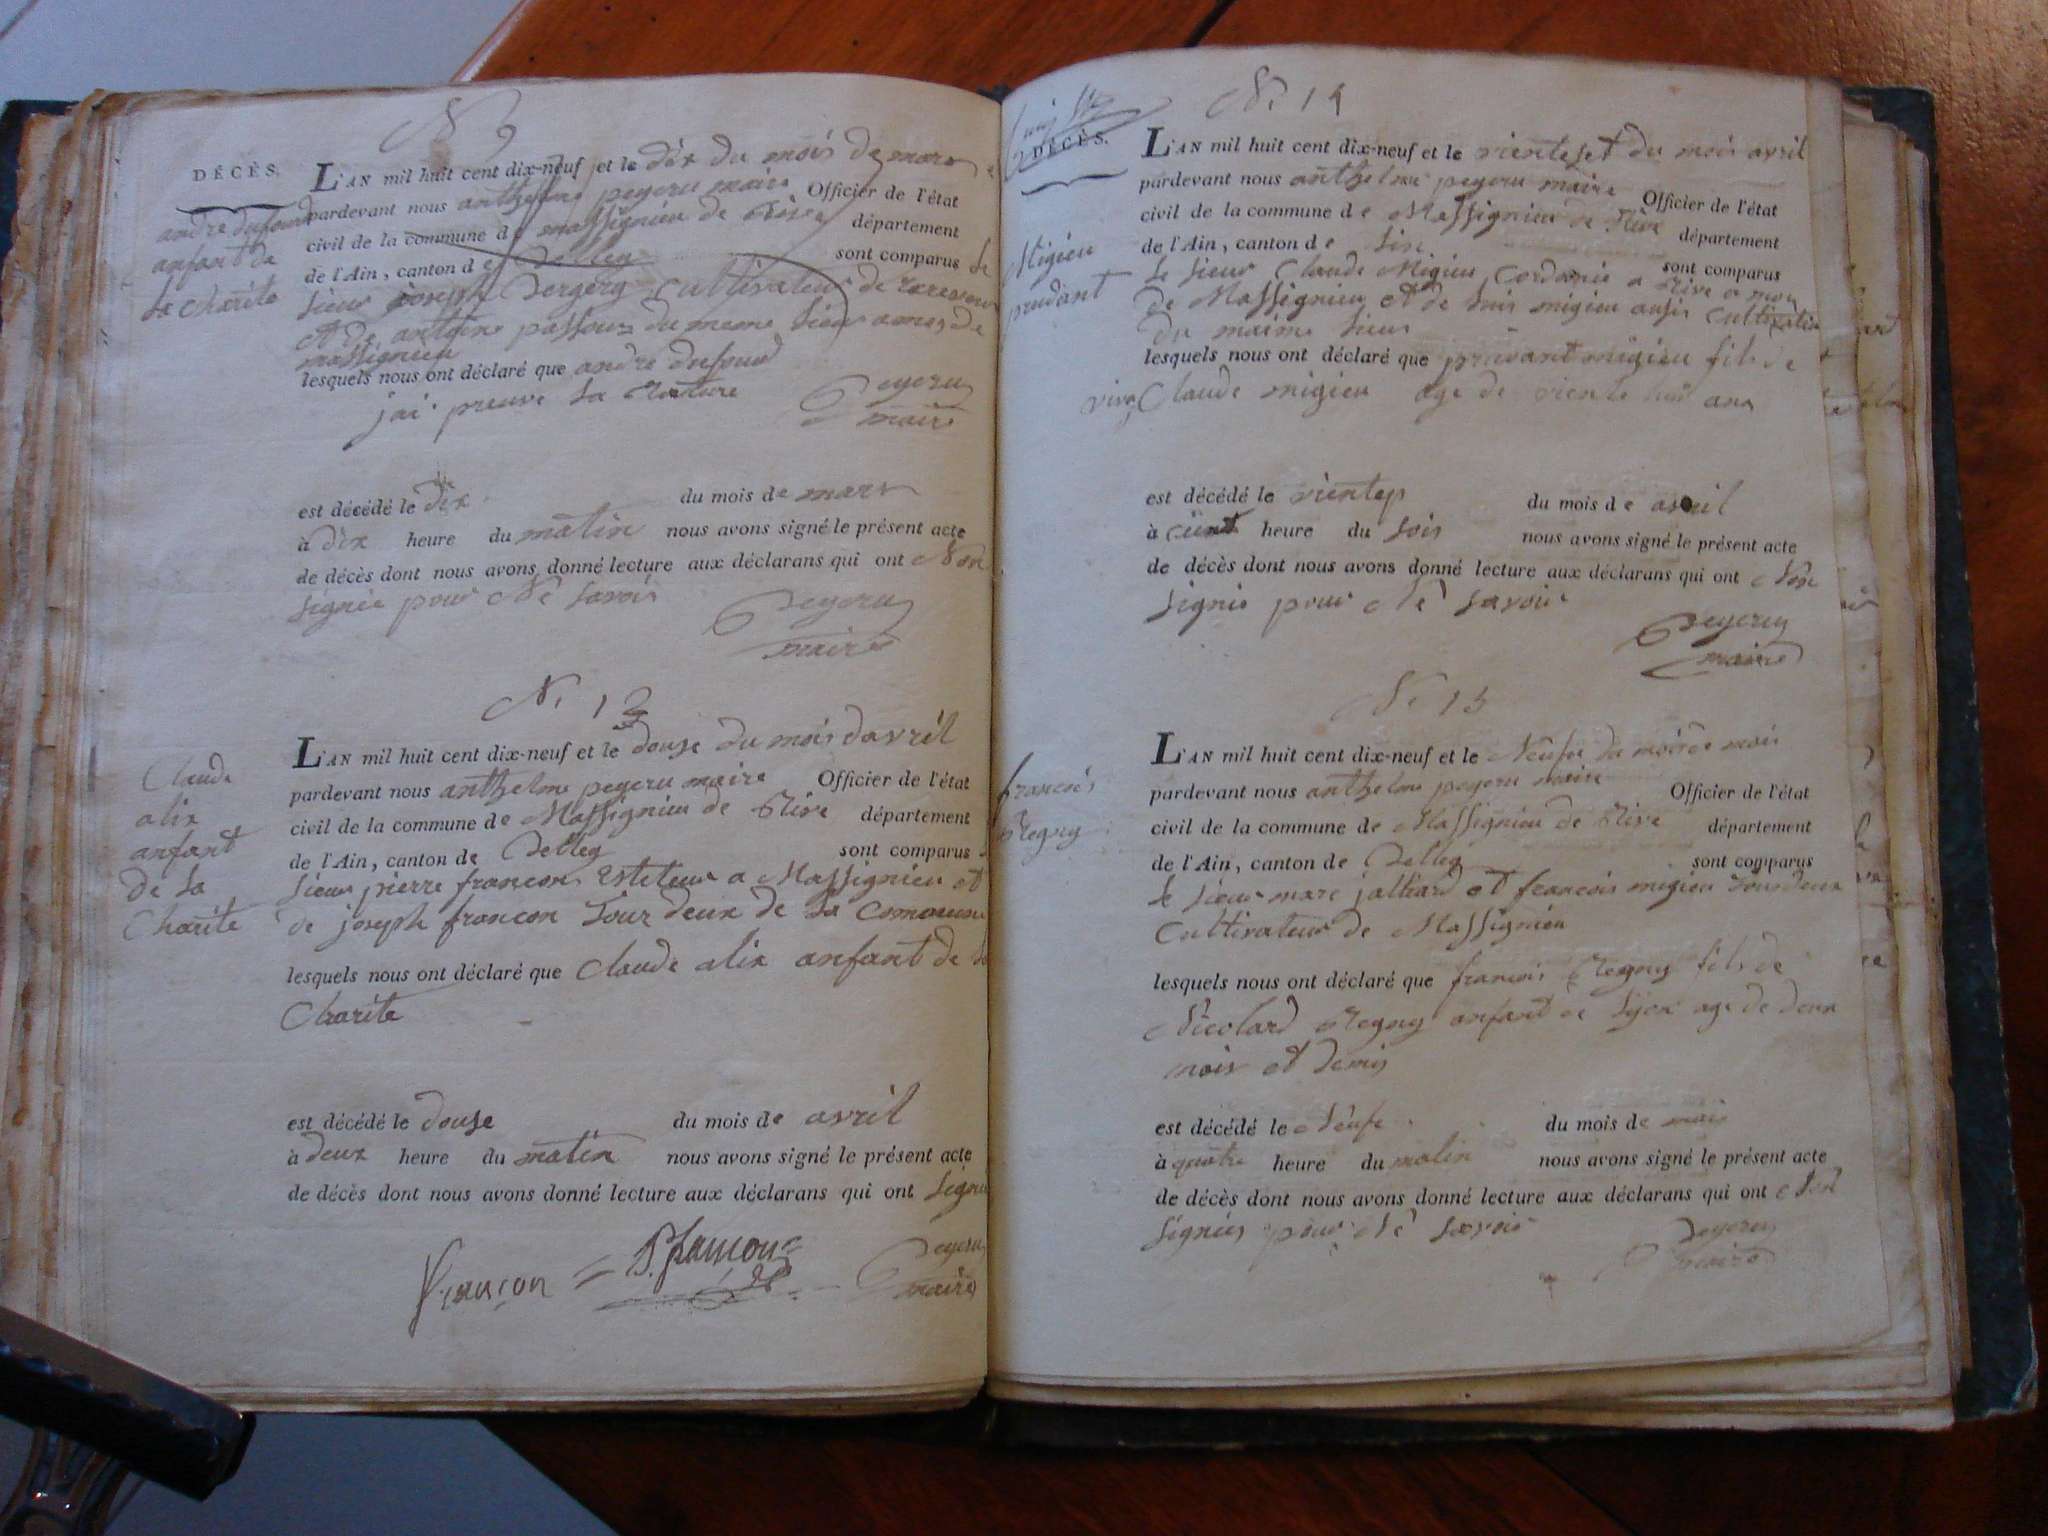 DÉCÈS.
andre dufour
anfant de
la charite
L'AN mil huit cent dix-neuf et le dix du mois de mars
pardevant nous anthelme peyeru maire Officier de l'état
civil de la commune de massignieu de Rive département
de l'Ain, canton de Belley sont comparus le
sieur joseph Bergery cultivateur de
et de antoine passour du meme lieu de
massignieu
lesquels nous ont déclaré que andre dufour
jai preuve la Rature Peyeru
maire
est décédé le dix du mois de mars
à dix heure du matin nous avons signé le présent acte
de décès dont nous avons donné lecture aux déclarans qui ont Non
signie pour Ne savoir
Peyeru
maire
N. 13
Claude
alix
anfant
de la
Charite
L'AN mil huit cent dix-neuf et le douse du mois davril
pardevant nous anthelme peyeru maire Officier de l'état
civil de la commune de Massignieu de Rive département
de l'Ain, canton de Belley sont comparus
sieur pierre francon a Massignieu et
de joseph francon tour deux de la comoune
lesquels nous ont déclaré que Claude alix anfant de la
Charite
est décédé le douse du mois de avril
à deux heure du matin nous avons signé le présent acte
de décès dont nous avons donné lecture aux déclarans qui ont signie
françon P. françon Peyeru
maire
N. 14
DÉCÈS.
Migieu
prudant
L'AN mil huit cent dix-neuf et le vientset du mois avril
pardevant nous anthelme peyeru maire Officier de l'état
civil de la commune de Massignieu de Rive département
de l'Ain, canton de sont comparus
le sieur Claude Migieu Cordonie a Rive
de Massignieu et de migieu ausis cultivateur
du maime lieu
lesquels nous ont déclaré que prudant migieu fils de
Claude migieu age de viente ans
est décédé le vientep du mois de avril
à heure du soir nous avons signé le présent acte
de décès dont nous avons donné lecture aux déclarans qui ont Non
signie pour Ne savoir
Peyeru
maire
N. 15
francois
Regny
L'AN mil huit cent dix-neuf et le Neufe du mois de mais
pardevant nous anthelme peyeru maire Officier de l'état
civil de la commune de Massignieu de Rive département
de l'Ain, canton de Belley sont comparus
le sieur marc jalliard et francois migieu tourdeux
cultivateur de Massignieu
lesquels nous ont déclaré que francois Regny fils de
Nicolard Regny anfant de Lyon age de deux
mois et demis
est décédé le Neufe du mois de mais
à quatre heure du matin nous avons signé le présent acte
de décès dont nous avons donné lecture aux déclarans qui ont Non
signies pour Ne savoir
Peyeru
maire